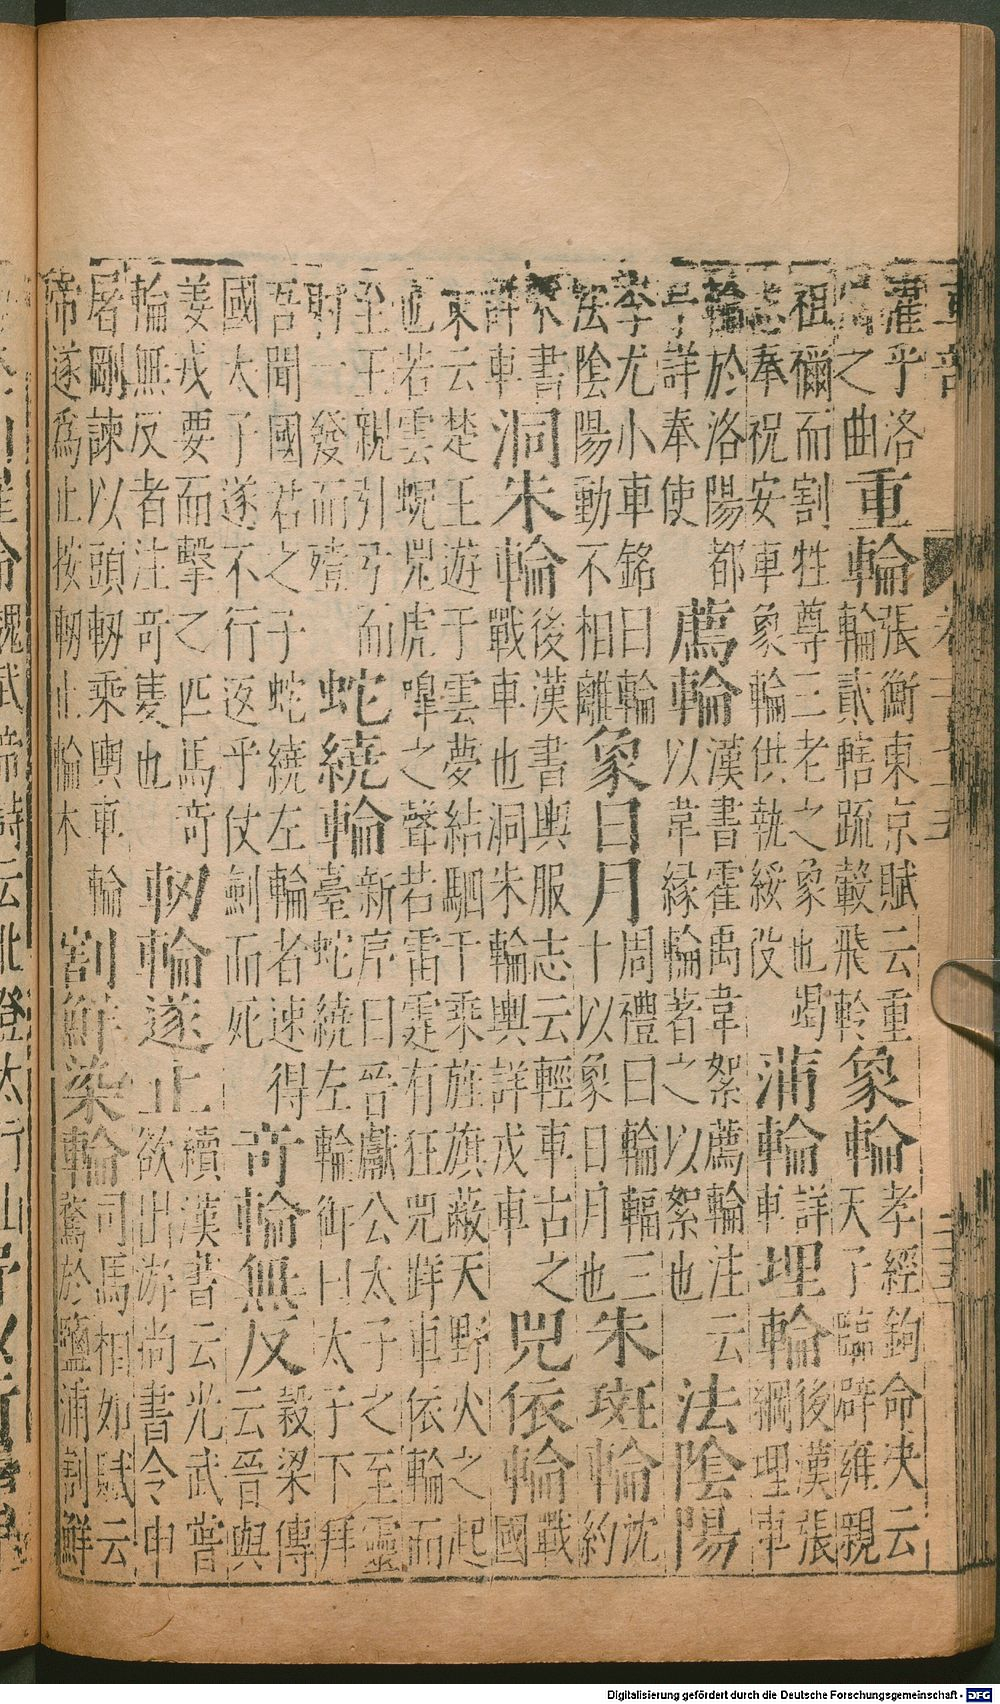 車部
濯乎洛
之曲
重輪
張衡東京賦云重
輪貳轄疏轂飛軨
象輪
孝經鉤命決云
天子臨辟雍親
祖禰而割牲尊三老之象也謁
忠奉祝安車象輪供執綏役
蒲輪
詳
車
埋輪
後漢張
綱埋車
輪於洛陽都
亭詳奉使
薦輪
漢書霍禹韋絮薦輪注云
以韋緣輪著之以絮也
法陰陽
李尤小車銘曰輪
法陰陽動不相離
象日月
周禮曰輪輻三
十以象日月也
朱斑輪
沈
約
宋書
詳車
洞朱輪
後漢書輿服志云輕車古之
戰車也洞朱輪輿詳戎車
兕依輪
戰
國
策云楚王遊于雲夢結駟千乘旌旗蔽天野火之起
也若雲蜺兕虎嘷之聲若雷霆有狂兕䍧車依輪而
至王親引弓而
射一發而殪
蛇繞輪
新序曰晉獻公太子之至靈
臺蛇繞左輪御曰太子下拜
吾聞國君之子蛇繞左輪者速得
國太子遂不行返乎仗劍而死
奇輪無反
穀梁傳
云晉與
姜戎要而擊之匹馬奇
輪無反者注奇隻也
軔輪遂止
續漢書云光武嘗
欲出游尚書令申
屠剛諫以頭軔乘輿車輪
帝遂為止按軔止輪木
割鮮染輪
司馬相如賦云
騖於鹽浦割鮮
Digitalisierung gefördert durch die Deutsche Forschungsgemeinschaft - DFG